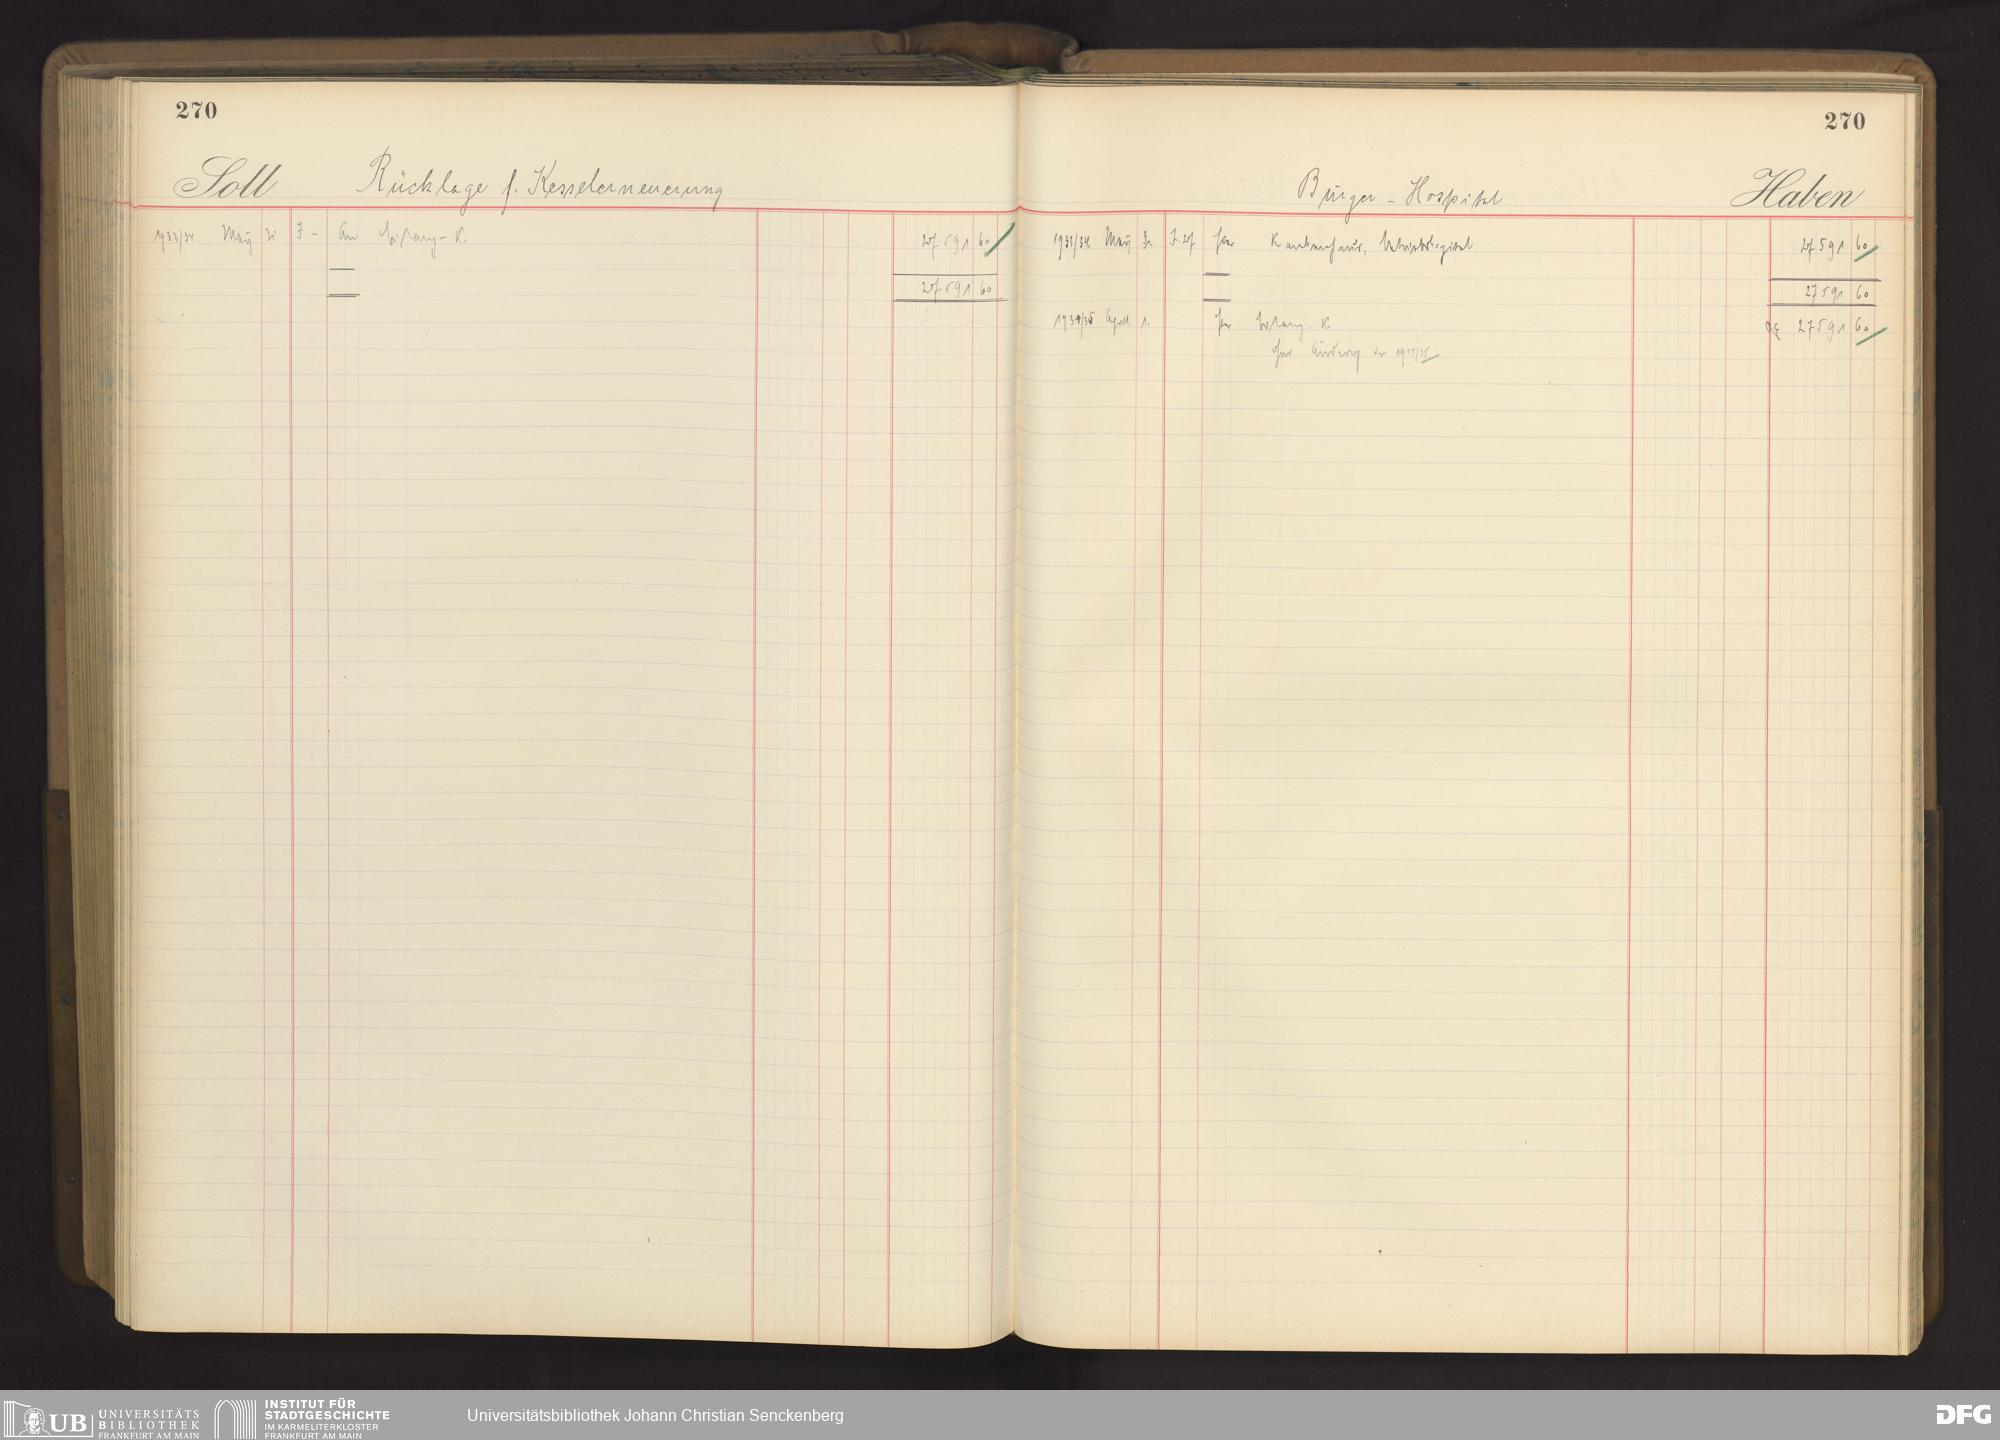 270
Soll Rücklage f. Kesselerneuerung
1933/34 März 31 J - An Bilanz-K. 27591 60
27591 60
270
Bürger-Hospital Haben
1933/34 März 31 J. 27 per Krankenhaus, Betriebskapital 27591 60
27591 60
1934/35 April 1. per Bilanz-K. 27591 60
1934/35
UB UNIVERSITÄTS
BIBLIOTHEK
FRANKFURT AM MAIN
INSTITUT FÜR
STADTGESCHICHTE
IM KARMELITERKLOSTER
FRANKFURT AM MAIN
Universitätsbibliothek Johann Christian Senckenberg
DFG